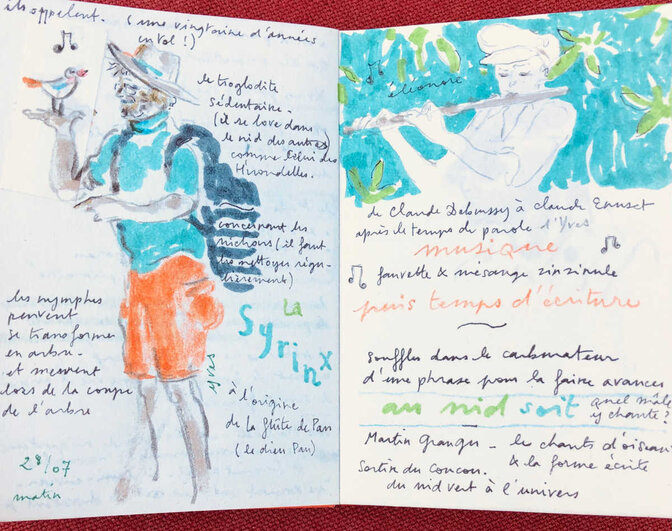 ils appellent. (une vingtaine d'années
en vol !)
le troglodite
sédentaire.
(il se love dans
le nid des autres)
comme celui des
Hirondelles.
concernant les
nichoirs (il faut
les nettoyer régu-
lièrement)
les nymphes
peuvent
se transformer
en arbre.
et meurent
lors de la coupe
de l'arbre
La
Syrinx
Yves
à l'origine
de la flûte de Pan
(le dieu Pan)
28/07
matin
éléonore
de Claude Debussy à Claude
après le temps de parole d'Yves
musique
fauvette & mésange zinzinule
puis temps d'écriture
souffler dans le carburateur
d'une phrase pour la faire avancer
au nid soit quel mâle
y chante ?
Martin - le chants d'oiseaux
& la forme écrite
sortir du cocon.
du nid vert à l'univers